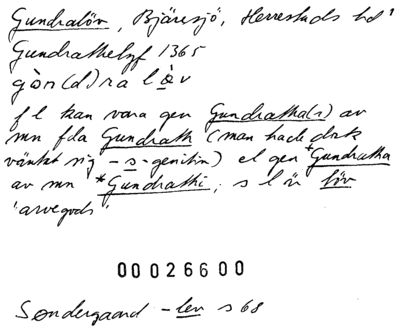 Gundralöv, Bjäresjö, Herrestads hd
Gundrathelef 1365
gòn(d)ra lø̀v
f l kan vara gen Gundratha(r) av
mn fda Gundrath (man hade dock
väntat sig -s-genitiv) el gen *Gundratha
av mn *Gundrathi; s l är löv
'arvegods'
00026600
Søndergaard -lev s 68